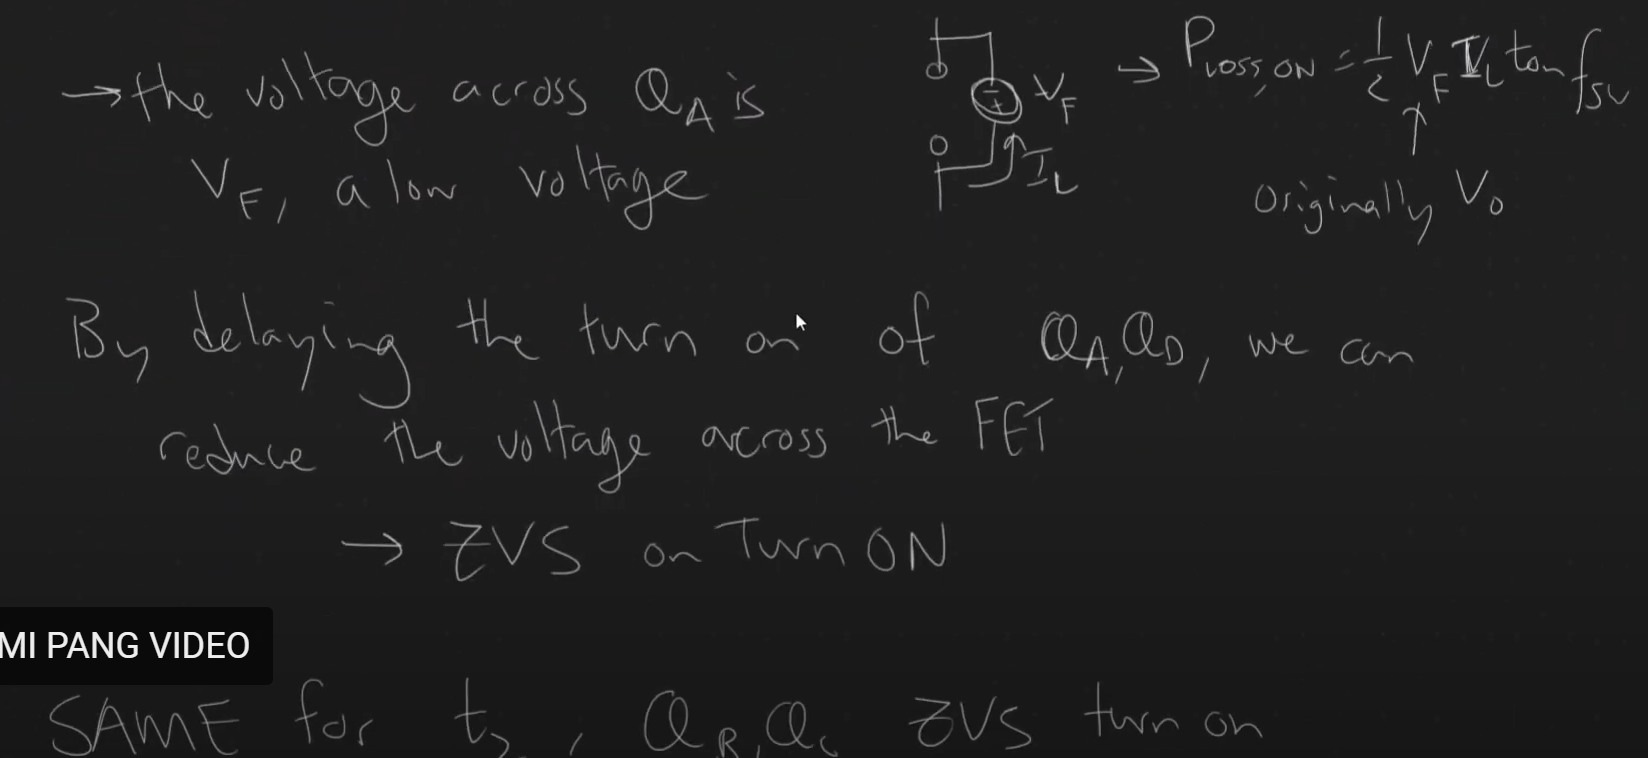 → the voltage across Q_A is
V_F, a low voltage
V_F
I_L
→ P_LOSS,ON = 1/2 V_F I_L t_on f_sw
↑
originally V_o
By delaying the turn on of Q_A, Q_D, we can
reduce the voltage across the FET
→ ZVS on Turn ON
MI PANG VIDEO
SAME for t_2, Q_B, Q_C ZVS turn on